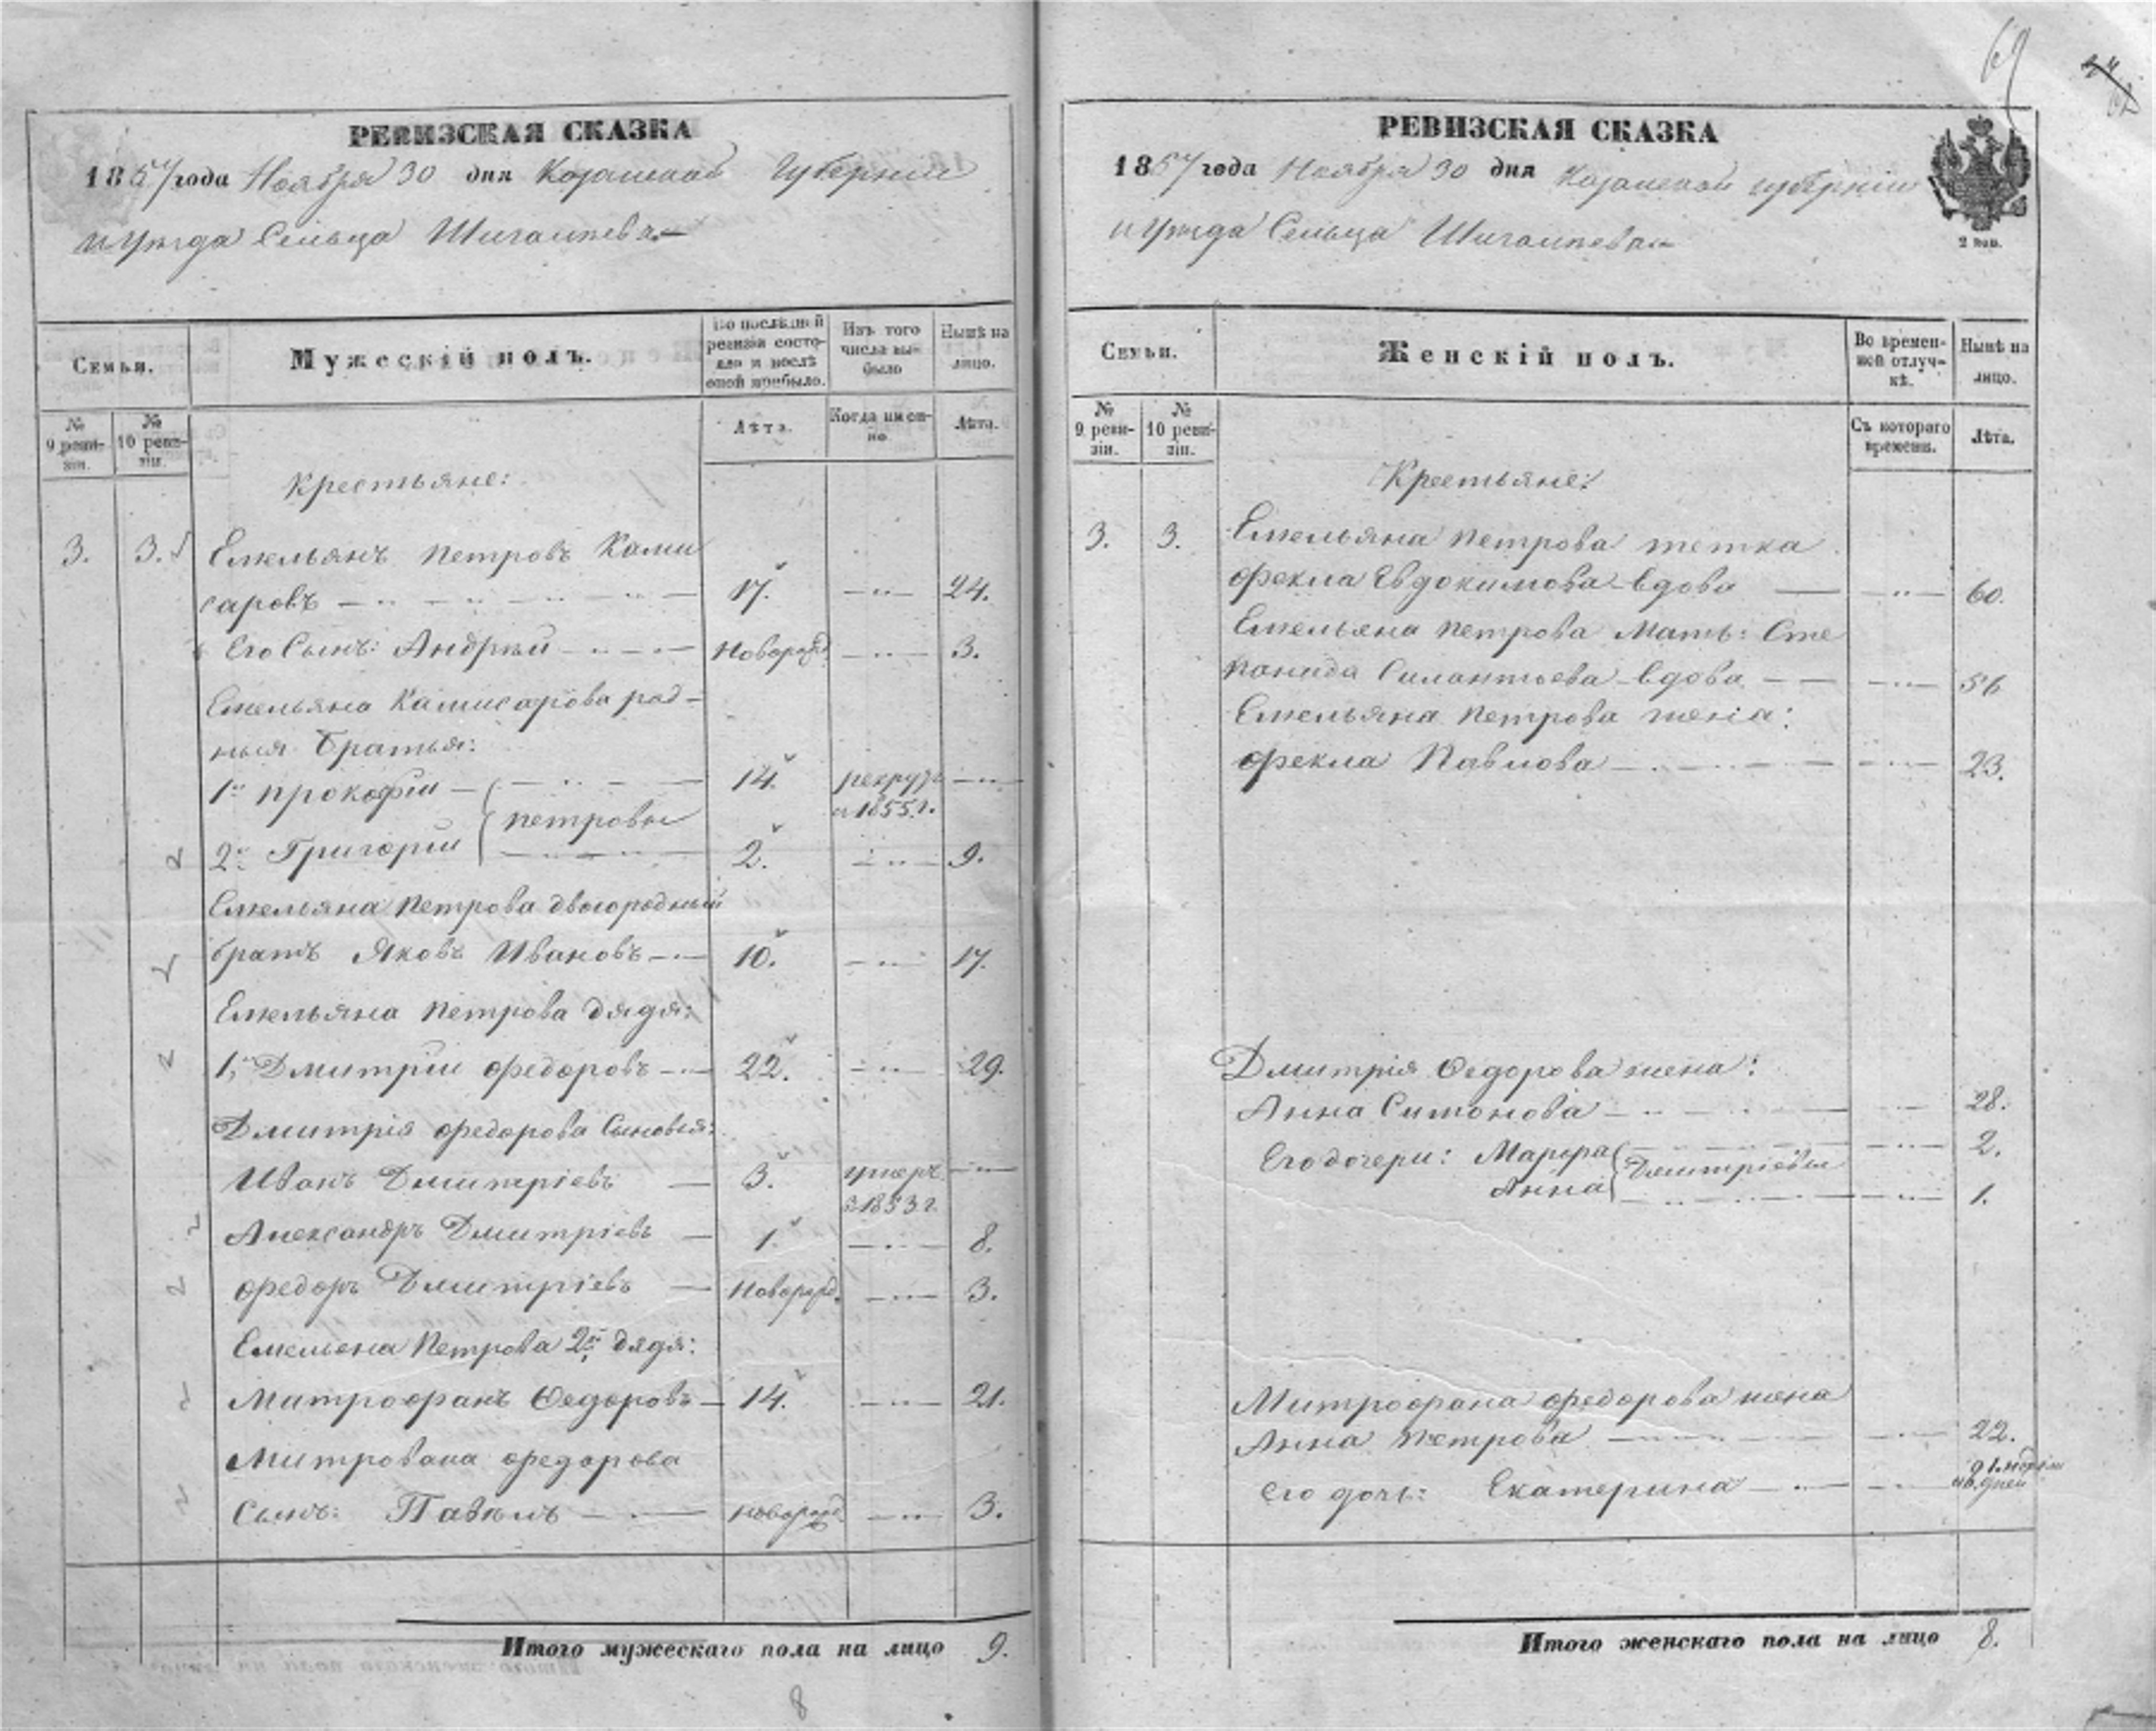 РЕВИЗСКАЯ СКАЗКА
1857 года Ноября 30 дня Казанской Губернии
и уѣзда Сельца Шигалеева
Семьи.
Мужескій полъ.
По послѣдней ревизіи состояло и послѣ оной прибыло.
Изъ того числа выбыло
Нынѣ на лицо.
№ 9 ревизіи.
№ 10 ревизіи.
Лѣта.
Когда именно
Лѣта.
Крестьяне:
3. 3. Емельянъ Петровъ Коми
саровъ 17. 24.
Его Сынъ: Андрѣй Новорожд. 3.
Емельяна Камисарова род-
ныя братья:
1й Прокофій 14. рекрут.
Петровы в 1855 г.
2й Григорій 2. 9.
Емельяна Петрова двоюродный
братъ Яковъ Ивановъ 10. 17.
Емельяна Петрова дядя:
1, Дмитрій Федоровъ 22. 29.
Дмитрія Федорова Сыновья:
Иванъ Дмитріевъ 3. умеръ
в 1853 г.
Александръ Дмитріевъ 1. 8.
Федоръ Дмитріевъ Новорожд. 3.
Емельяна Петрова 2й дядя:
Митрофанъ Ѳедоровъ 14. 21.
Митрована Федорова
Сынъ: Павелъ новорожд. 3.
Итого мужескаго пола на лицо 9.
8
69
РЕВИЗСКАЯ СКАЗКА
1857 года Ноября 30 дня Казанской губерніи
и уѣзда Сельца Шигалеева
2 коп.
Семьи.
Женскій полъ.
Во временной отлучкѣ.
Нынѣ на лицо.
№ 9 ревизіи.
№ 10 ревизіи.
Съ котораго времени.
Лѣта.
Крестьяне:
3. 3. Емельяна Петрова тетка
Фекла Евдокимова вдова 60.
Емельяна Петрова Мать: Сте
панида Силантьева вдова 56
Емельяна Петрова жена:
Фекла Павлова 23.
Дмитрія Ѳедорова жена:
Анна Симонова 28.
Его дочери: Марфа 2.
Дмитріевы
Анна 1.
Митрофана Федорова жена
Анна Петрова 22.
его дочь: Екатерина дней
Итого женскаго пола на лицо 8.